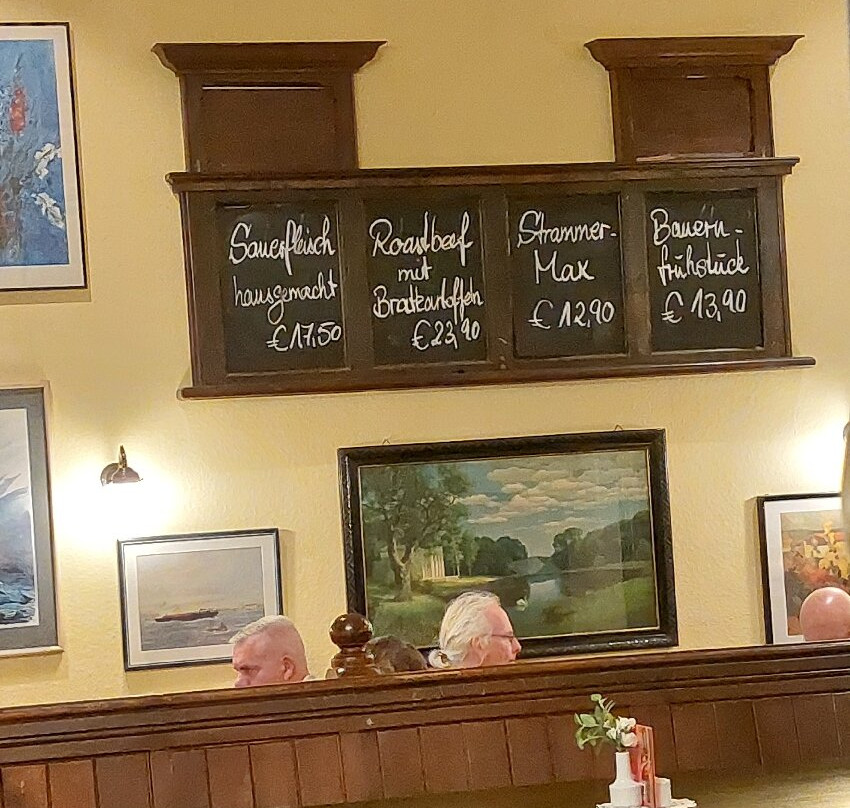 Sauerfleisch
hausgemacht
€ 17,50
Roastbeef
mit
Bratkartoffeln
€ 23,90
Strammer-
Max
€ 12,90
Bauern-
frühstück
€ 13,90